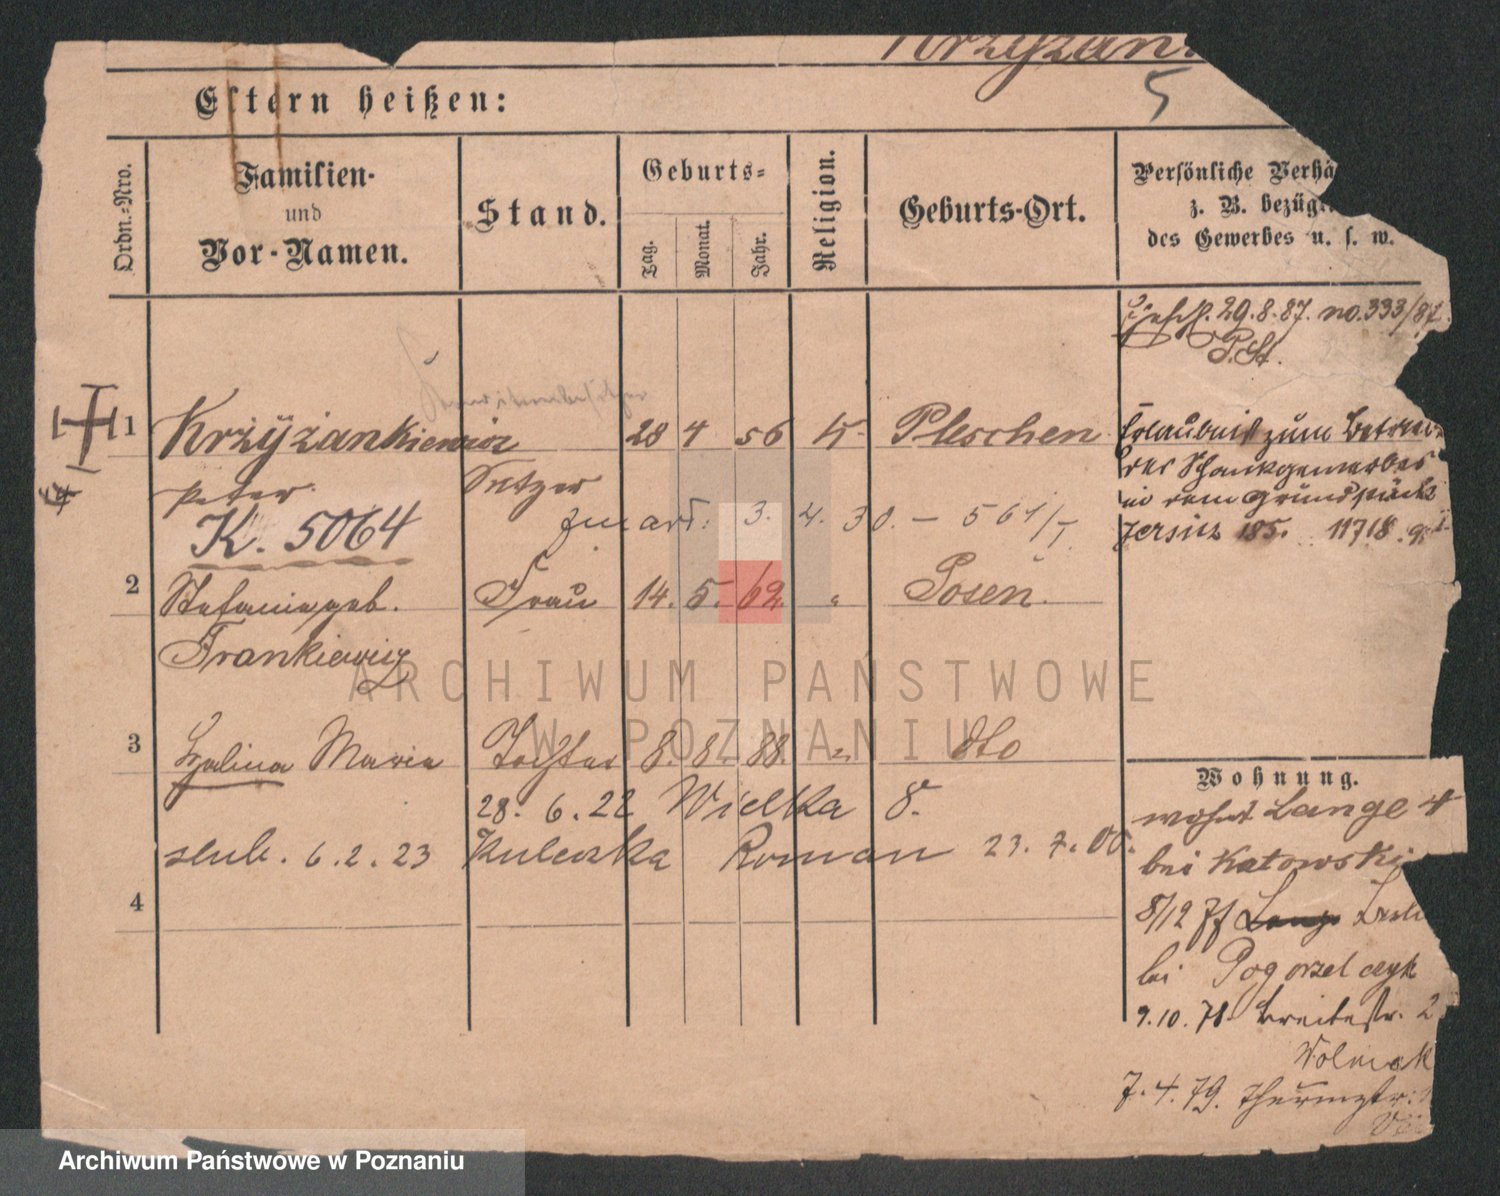 Krzyżan
5
Eltern heißen:
Ordn.-Nro.
Familien-
und
Vor-Namen.
Stand.
Geburts-
Tag.
Monat.
Jahr.
Religion.
Geburts-Ort.
Persönliche Verhä
z. B. bezügl.
des Gewerbes u. s. w.
29.8.87. no. 333/87.
P.St.
1 Krzyżankiewicz 28 4 56 K. Pleschen
Peter Setzer
K. 5064
zmarł: 3. 4. 30. – 561/I
Erlaubniß zum Betrieb
des Schankgewerbes
in dem Grundstück
Jersitz 185. 11718
2 Stefania geb. Frau 14. 5. 62. " Posen
Frankiewicz
3 Halina Maria Tochter 8. 8. 88. " dto
28. 6. 22 Wielka 8.
slub. 6.2.23 Kuleczka Roman 23. 7. 00.
4
Wohnung.
wohnt Lange 4
bei Katowski
8/12 77 Lange
bei Pogorzelczyk
9.10.78 Breitestr. 2
Wolniak
7.4.79.
ARCHIWUM PAŃSTWOWE
W POZNANIU
Archiwum Państwowe w Poznaniu